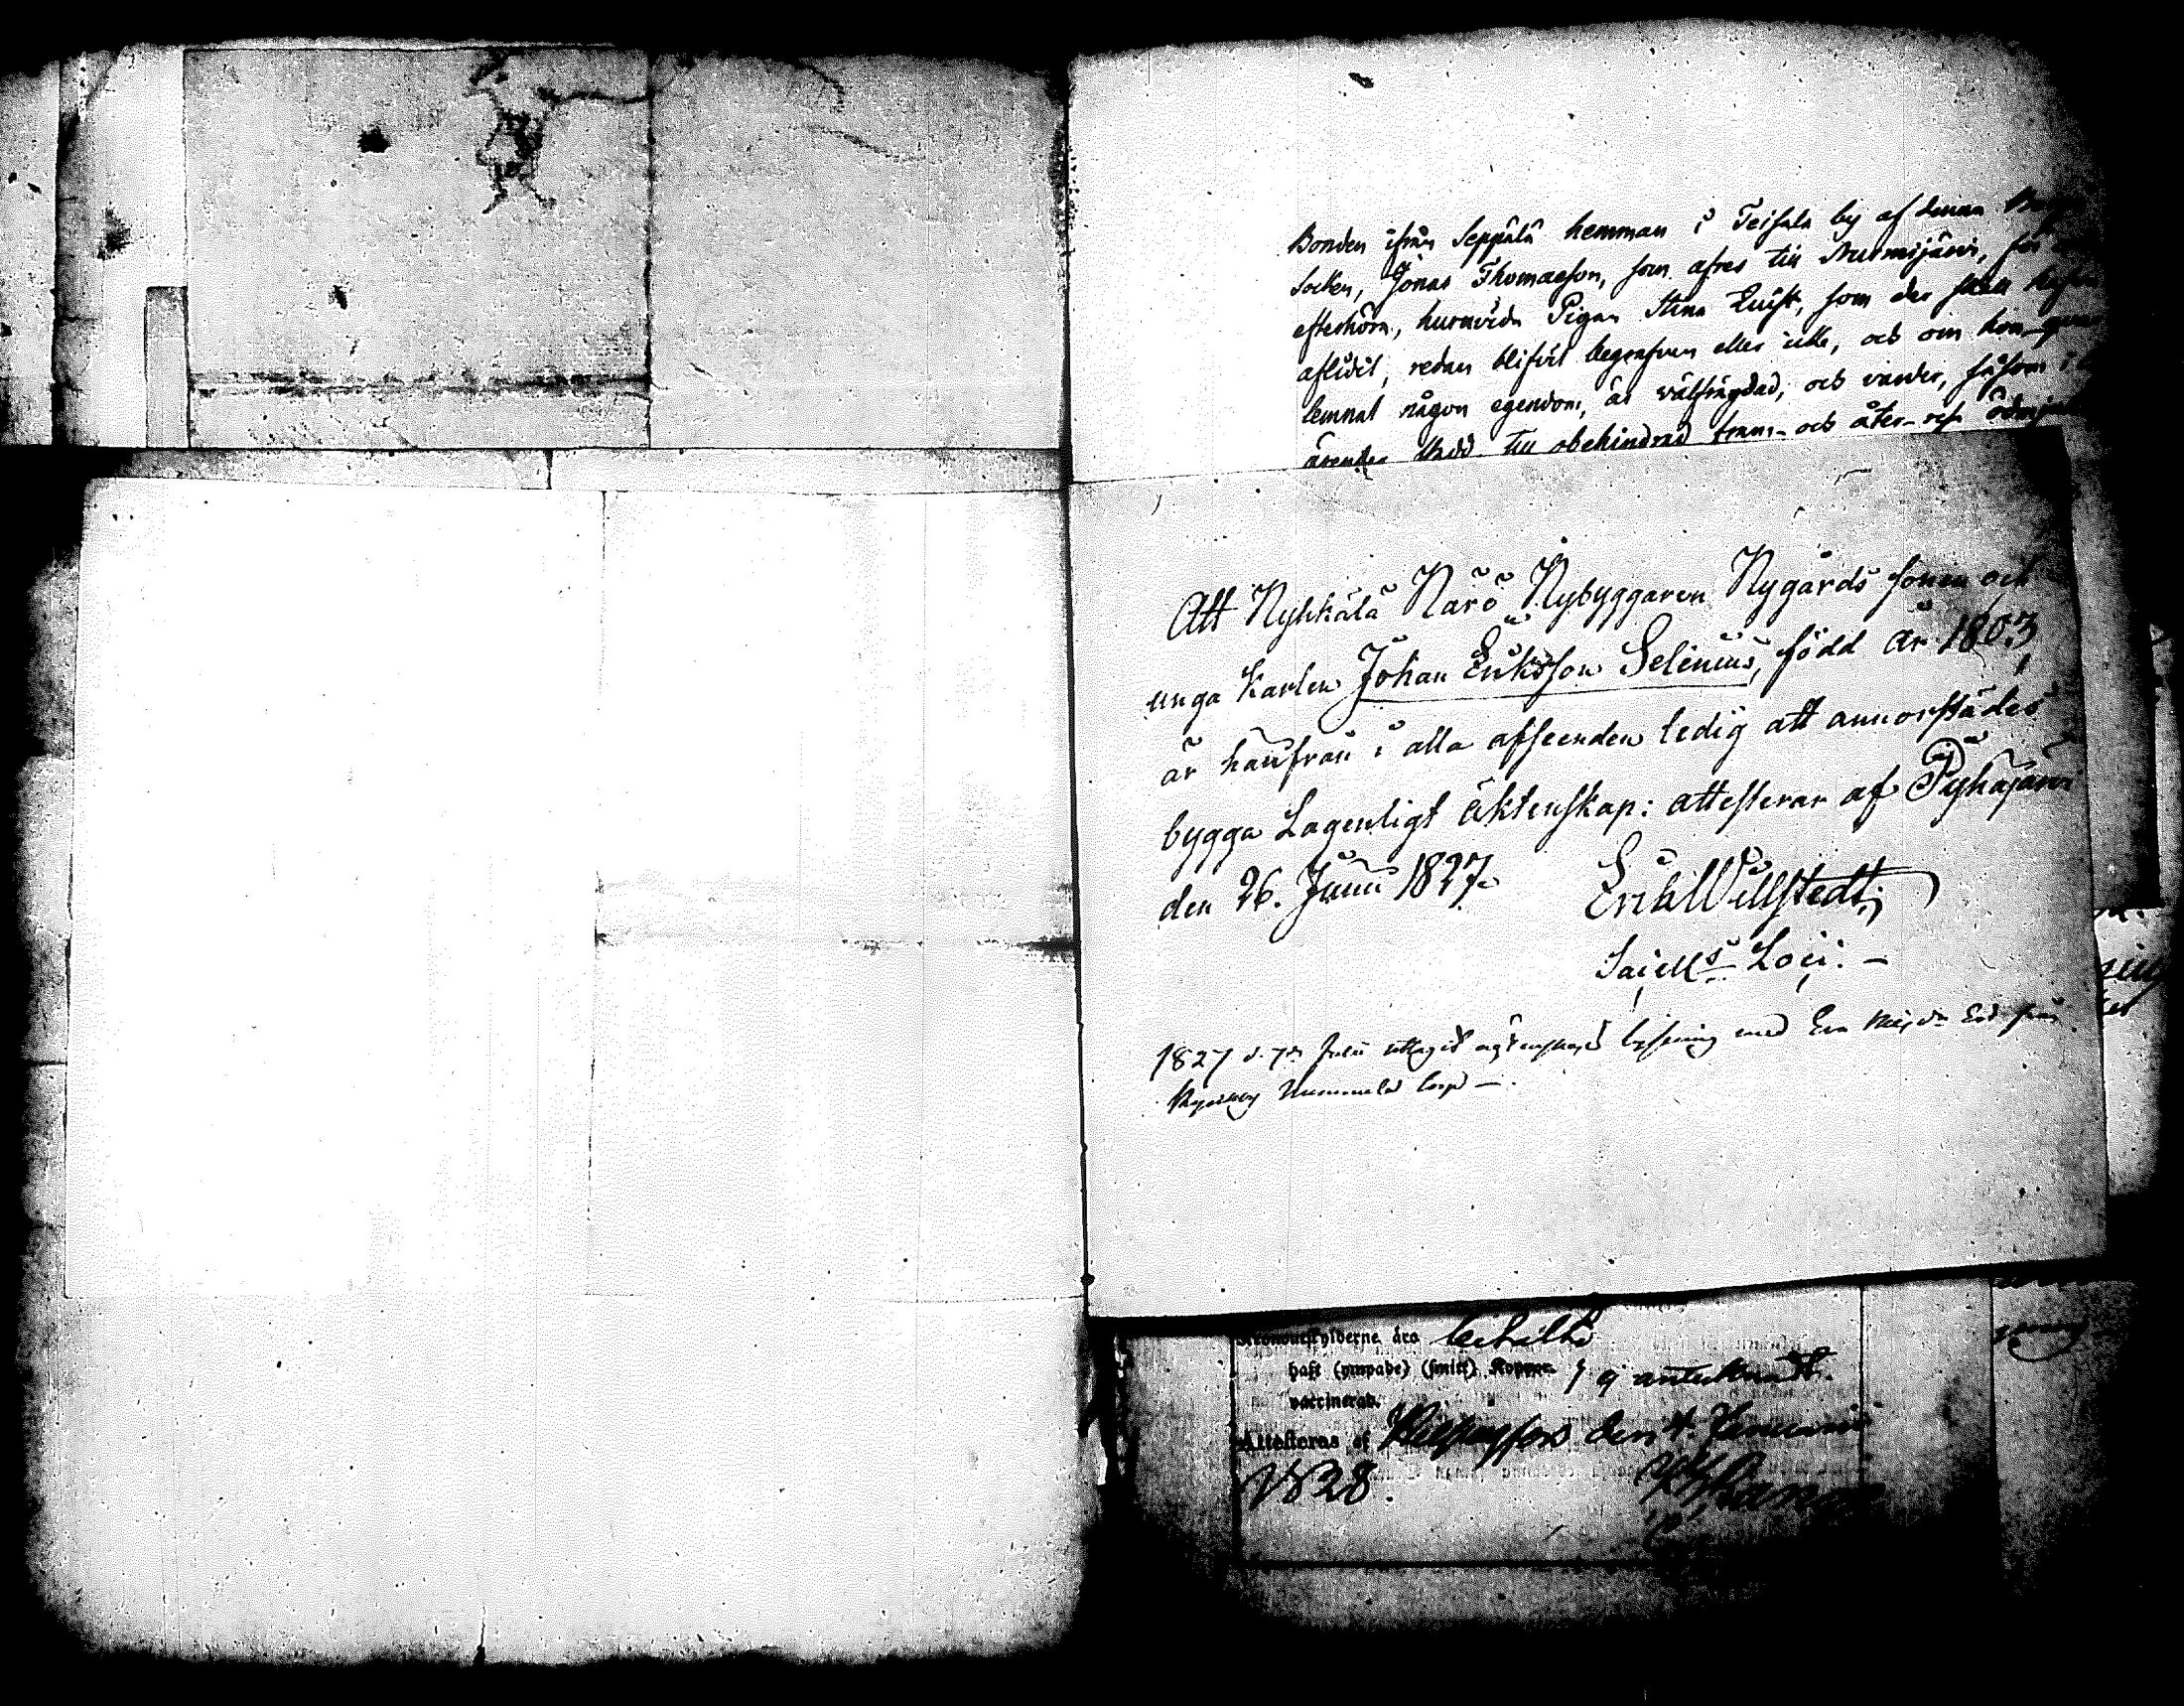 Bonden ifrån Seppälä hemman i Teisala by af denna
Socken, Jonas Thomasson, som afres till Nurmijärvi, för
efterhöra, huruvida Pigan Stina Quist, som der skall hafva
aflidit, redan blifvit begrafven eller icke, och om hon
lemnat någon egendom, är välfrägdad, och varder, såsom i
ärender stadd till obehindrad fram- och åter-
Att Nyhkälä Närö Nybyggaren Nygårds sonen och
unga Karlen Johan Eriksson Selenius, född år 1803,
är härifrån i alla afseenden ledig att annorstädes
bygga Lagenligt äktenskap: attesterar af Pyhäjärvi
den 26. Junii 1827.
Erik Willstedt.
Sacells Loci. –
1827 d. 7de Julii uttagit lysning med
Nummela
äro
haft (ympade) (smitt) Koppor
vaccinerad.
ej antecknadt.
Attesteras af Helsingfors den 4. Januarii
1828.